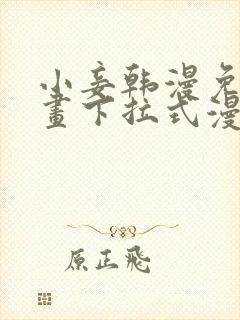 小妾韩漫免
畫下拉式漫
原正飛